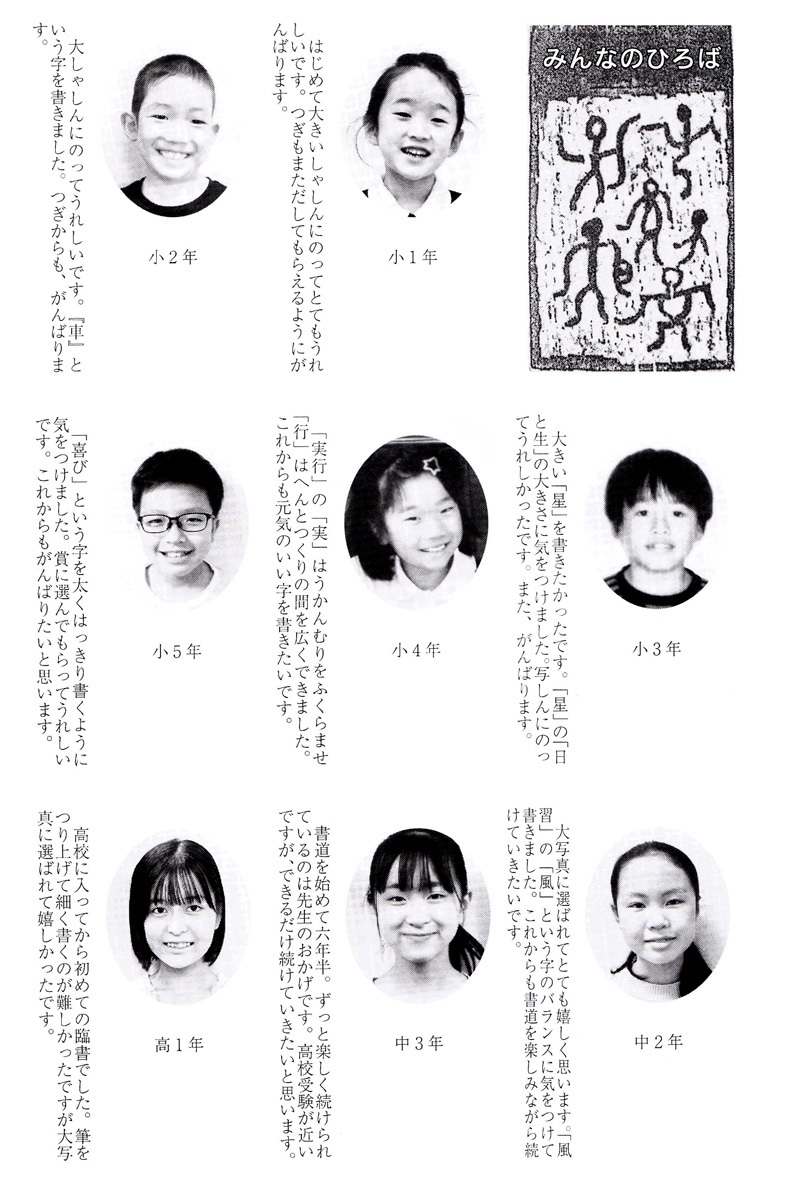 みんなのひろば
小1年
はじめて大きいしゃしんにのってとてもうれ
しいです。つぎもまただしてもらえるようにが
んばります。
小2年
大しゃしんにのってうれしいです。『車』と
いう字を書きました。つぎからも、がんばりま
す。
小3年
大きい「星」を書きたかったです。「星」の「日
と生」の大きさに気をつけました。写しんにのっ
てうれしかったです。また、がんばります。
小4年
「実行」の「実」はうかんむりをふくらませ
「行」はへんとつくりの間を広くできました。
これからも元気のいい字を書きたいです。
小5年
「喜び」という字を太くはっきり書くように
気をつけました。賞に選んでもらってうれしい
です。これからもがんばりたいと思います。
中2年
大写真に選ばれてとても嬉しく思います。「風
習」の「風」という字のバランスに気をつけて
書きました。これからも書道を楽しみながら続
けていきたいです。
中3年
書道を始めて六年半。ずっと楽しく続けられ
ているのは先生のおかげです。高校受験が近い
ですが、できるだけ続けていきたいと思います。
高1年
高校に入ってから初めての臨書でした。筆を
つり上げて細く書くのが難しかったですが大写
真に選ばれて嬉しかったです。